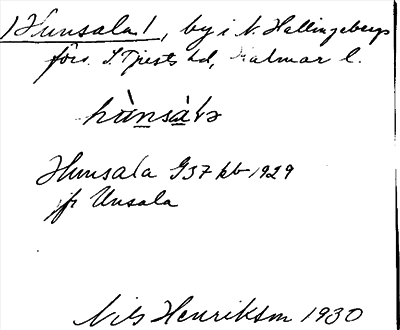 /Hunsala/, by i N. Hallingebergs
förs. S. Tjusts hd, Kalmar l.
Hunsala G37 kb 1929
jfr Unsala
Nils Henrikson 1930